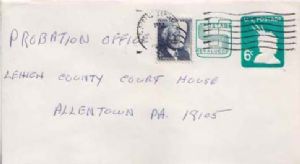 PROBATION OFFICE
U.S. POSTAGE
6¢
LEHIGH COUNTY COURT HOUSE
ALLENTOWN PA. 18105